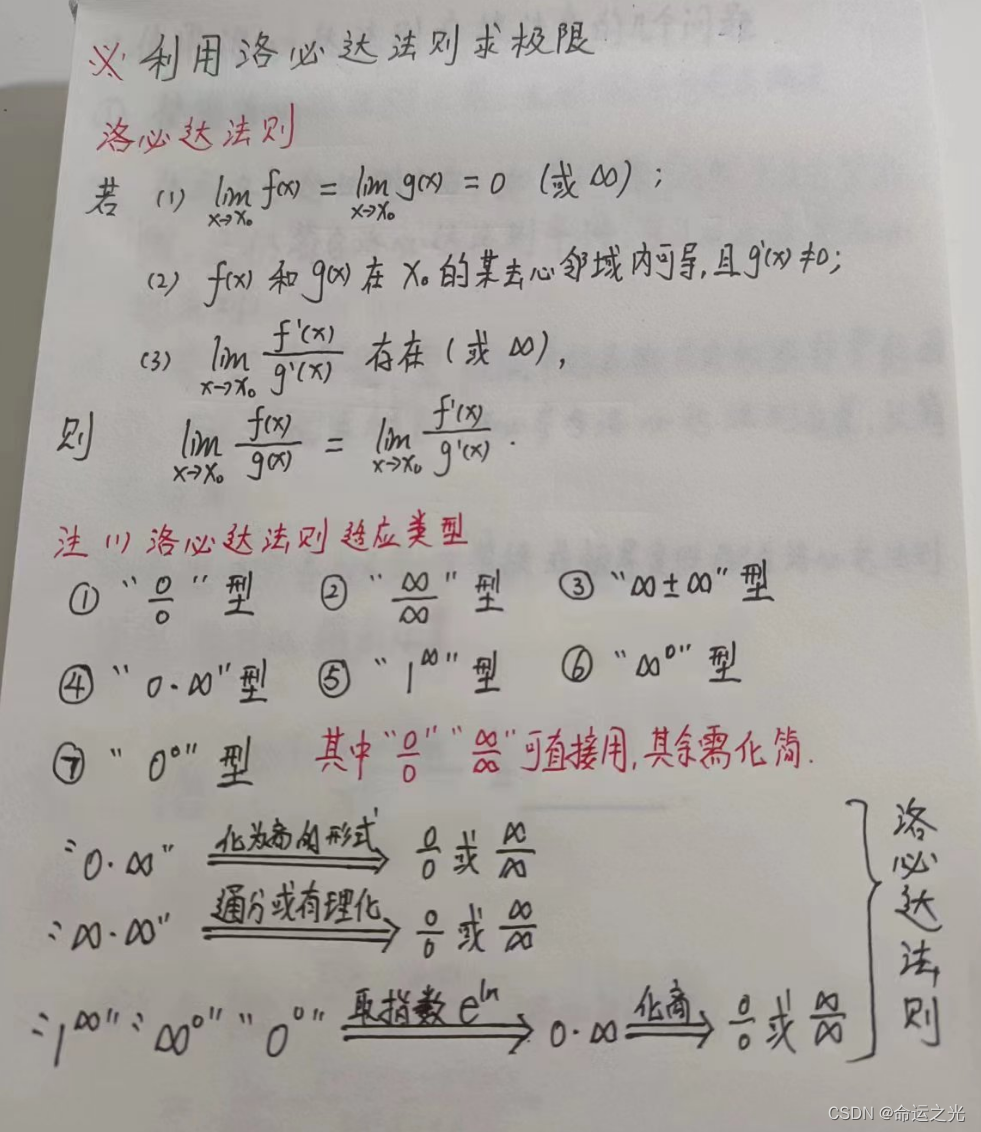 ※ 利用洛必达法则求极限
洛必达法则
若 (1) lim_{x→x₀} f(x) = lim_{x→x₀} g(x) = 0 (或 ∞);
(2) f(x) 和 g(x) 在 x₀ 的某去心邻域内可导,且 g'(x)≠0;
(3) lim_{x→x₀} f'(x)/g'(x) 存在 (或 ∞),
则 lim_{x→x₀} f(x)/g(x) = lim_{x→x₀} f'(x)/g'(x).
注 (1) 洛必达法则适应类型
① “0/0” 型 ② “∞/∞” 型 ③ “∞±∞” 型
④ “0·∞” 型 ⑤ “1^∞” 型 ⑥ “∞^0” 型
⑦ “0^0” 型 其中 “0/0” “∞/∞” 可直接用,其余需化简.
“0·∞” ⟹ 化为商的形式 0/0 或 ∞/∞
“∞·∞” ⟹ 通分或有理化 0/0 或 ∞/∞
“1^∞” “∞^0” “0^0” ⟹ 取指数 e^{ln} 0·∞ ⟹ 化商 0/0 或 ∞/∞
洛必达法则
CSDN @命运之光